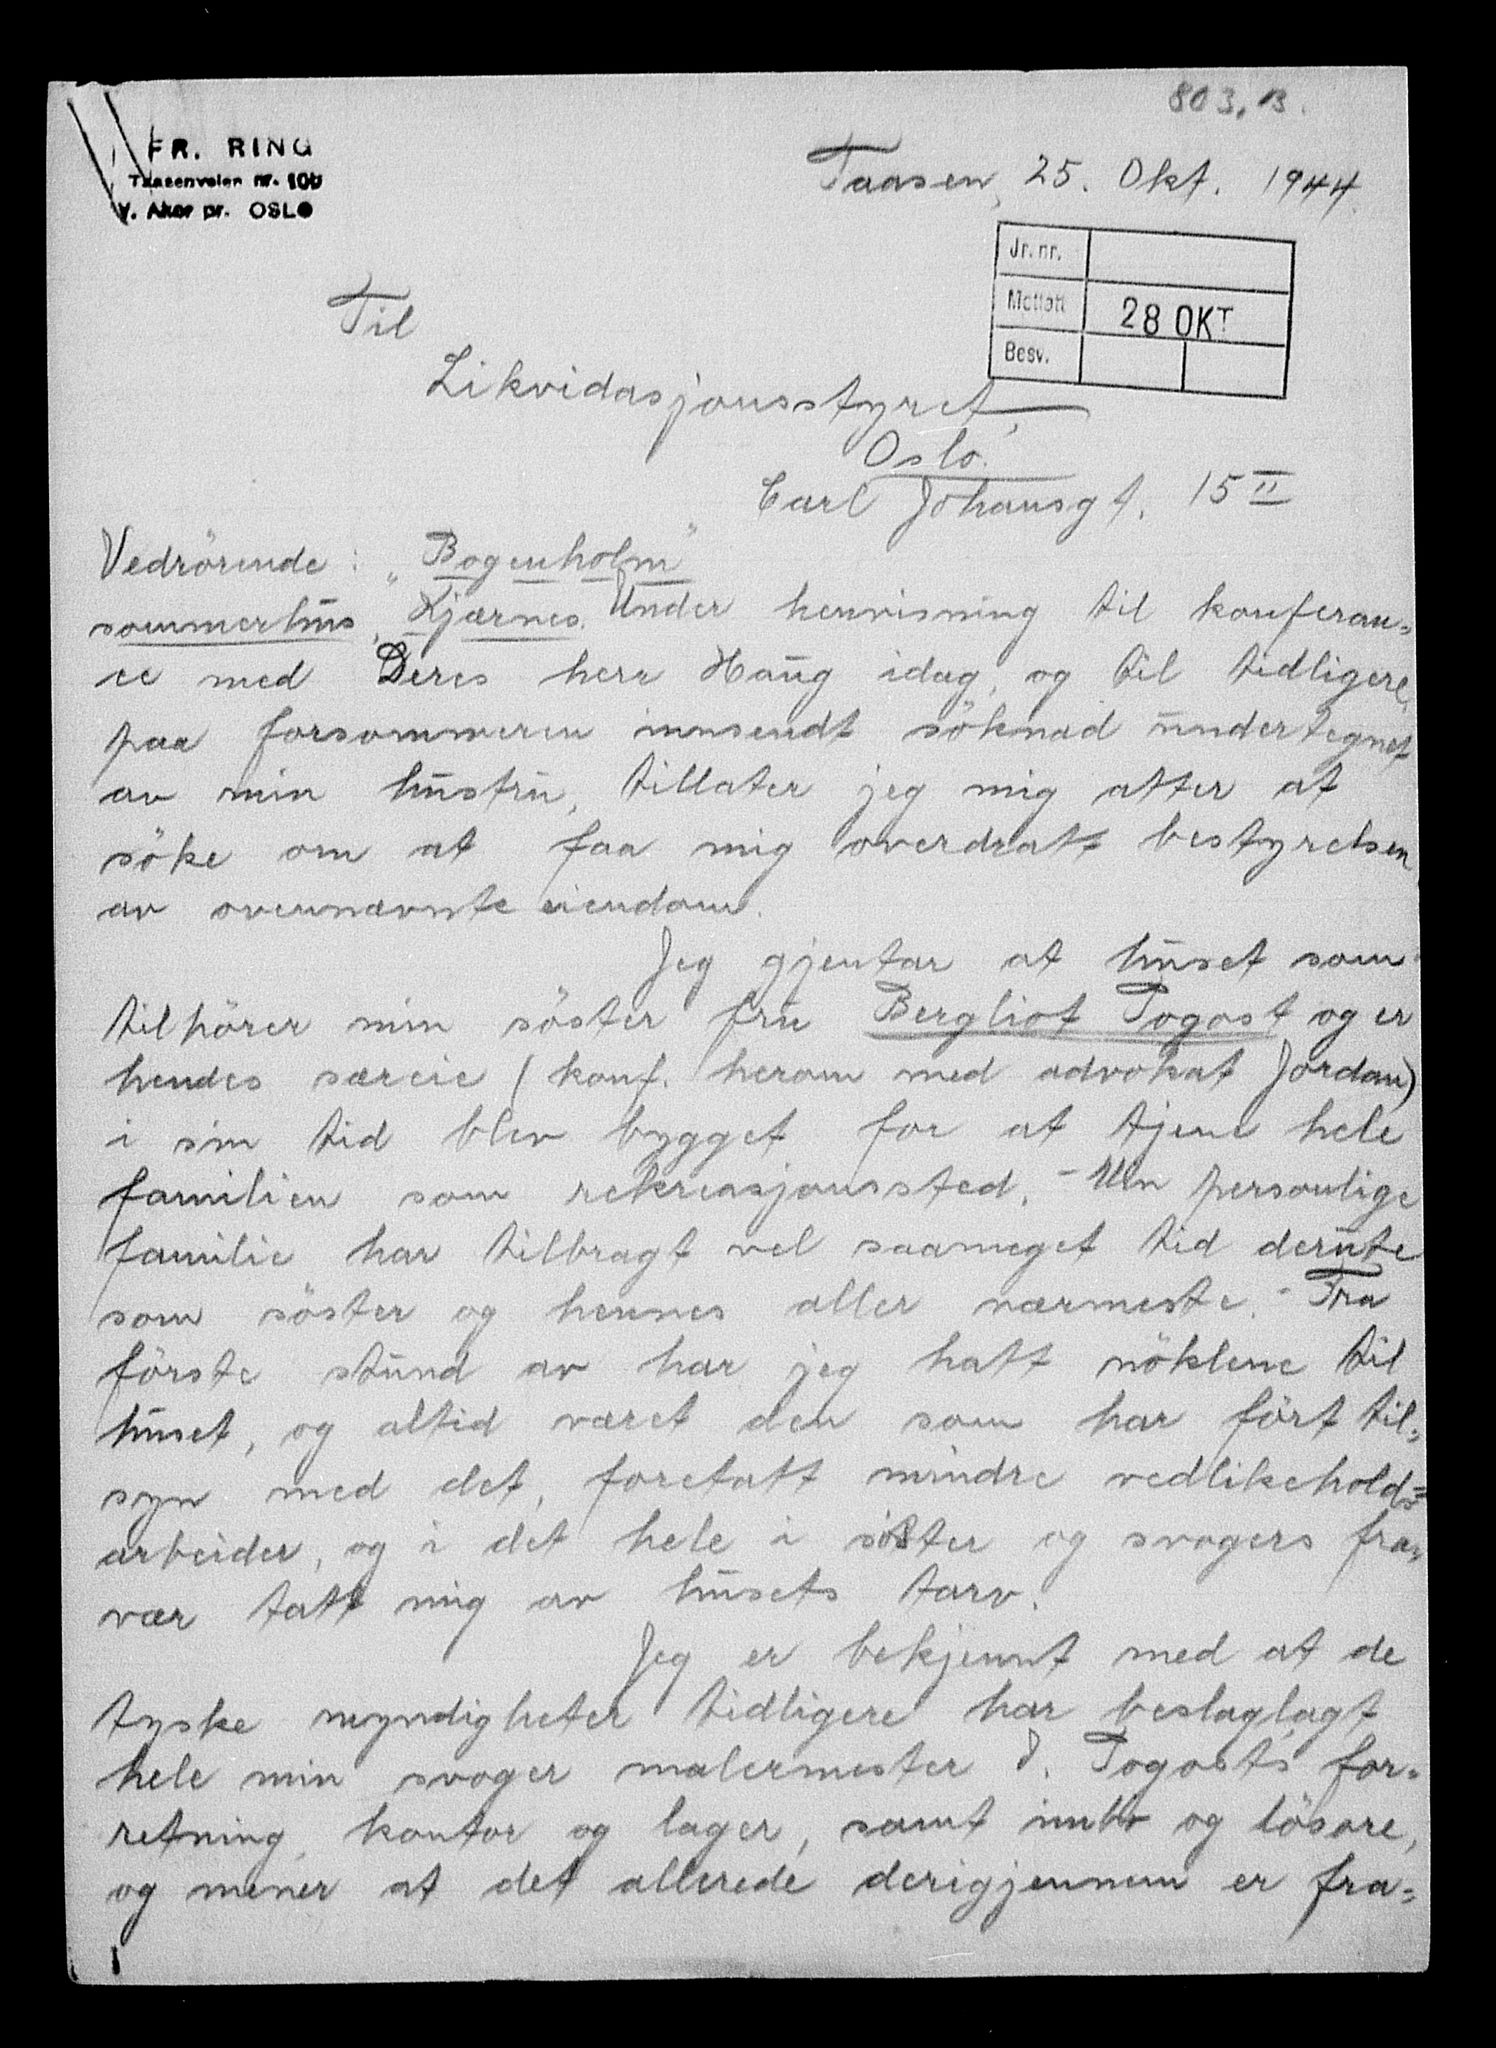 803. B.
FR. RING
Taasenveien nr. 100
V. Aker pr. OSLO
Taasen, 25. Okt. 1944.
Jr. nr.
Mottatt 28 OKT
Besv.
Til
Likvidasjonsstyret,
Oslo.
Carl Johansgt. 15 II
Vedrörende: "Bogenholm"
sommerhus, Kjærnes. Under henvisning til konferan=
ce med Deres herr Haug idag, og til tidligere,
paa forsommeren innsendt söknad undertegnet
av min hustru, tillater jeg mig atter at
söke om at faa mig overdratt bestyrelsen
av ovennævnte eiendom.
Jeg gjentar at huset som
tilhörer min söster fru Bergliot Pogost og er
hendes særeie (konf. herom med advokat Jordan)
i sin tid blev bygget for at tjene hele
familien som rekreasjonssted. - Min personlige
familie har tilbragt vel saameget tid derute
som söster og hennes aller nærmeste. - Fra
förste stund av har jeg hatt nöklene til
huset, og altid været den som har fört til=
syn med det, foretatt mindre vedlikeholds=
arbeider, og i det hele i söster og svogers fra=
vær tatt mig av husets tarv.
Jeg er bekjennt med at de
tyske myndigheter tidligere har beslaglagt
hele min svoger malermester J. Pogost's for=
retning, kontor og lager, samt innbo og lösöre,
og mener at det allerede derigjennem er fra=